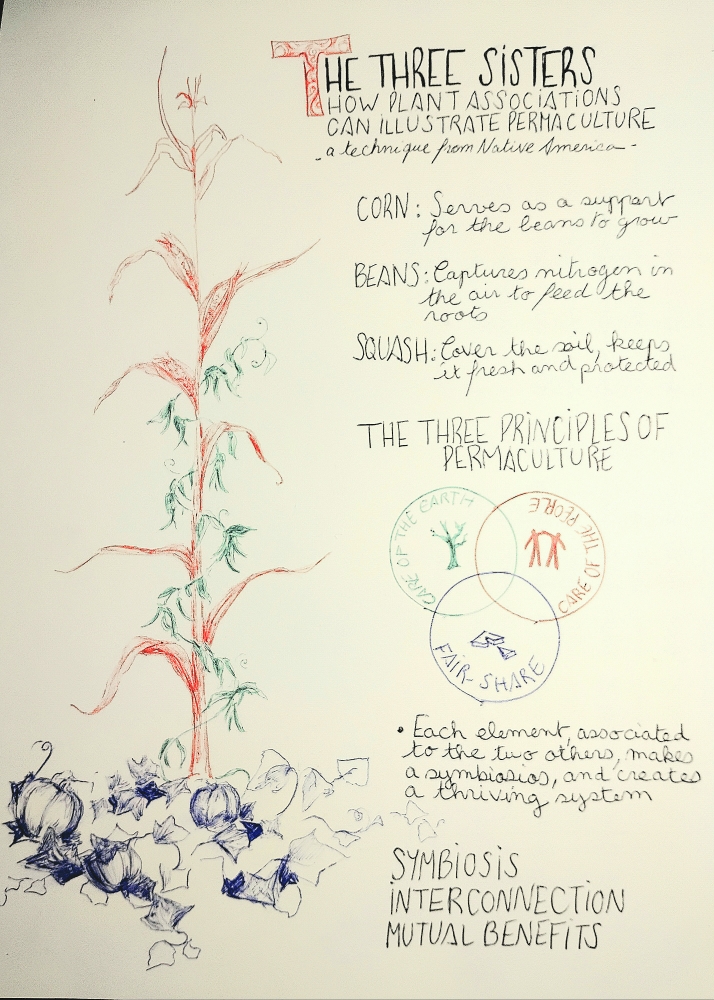 THE THREE SISTERS
HOW PLANT ASSOCIATIONS
CAN ILLUSTRATE PERMACULTURE
- a technique from Native America -
CORN: Serves as a support
for the beans to grow
BEANS: Captures nitrogen in
the air to feed the
roots
SQUASH: Cover the soil, keeps
it fresh and protected
THE THREE PRINCIPLES OF
PERMACULTURE
CARE OF THE EARTH
CARE OF THE PEOPLE
FAIR-SHARE
• Each element, associated
to the two others, makes
a symbiosios, and creates
a thriving system
SYMBIOSIS
INTERCONNECTION
MUTUAL BENEFITS